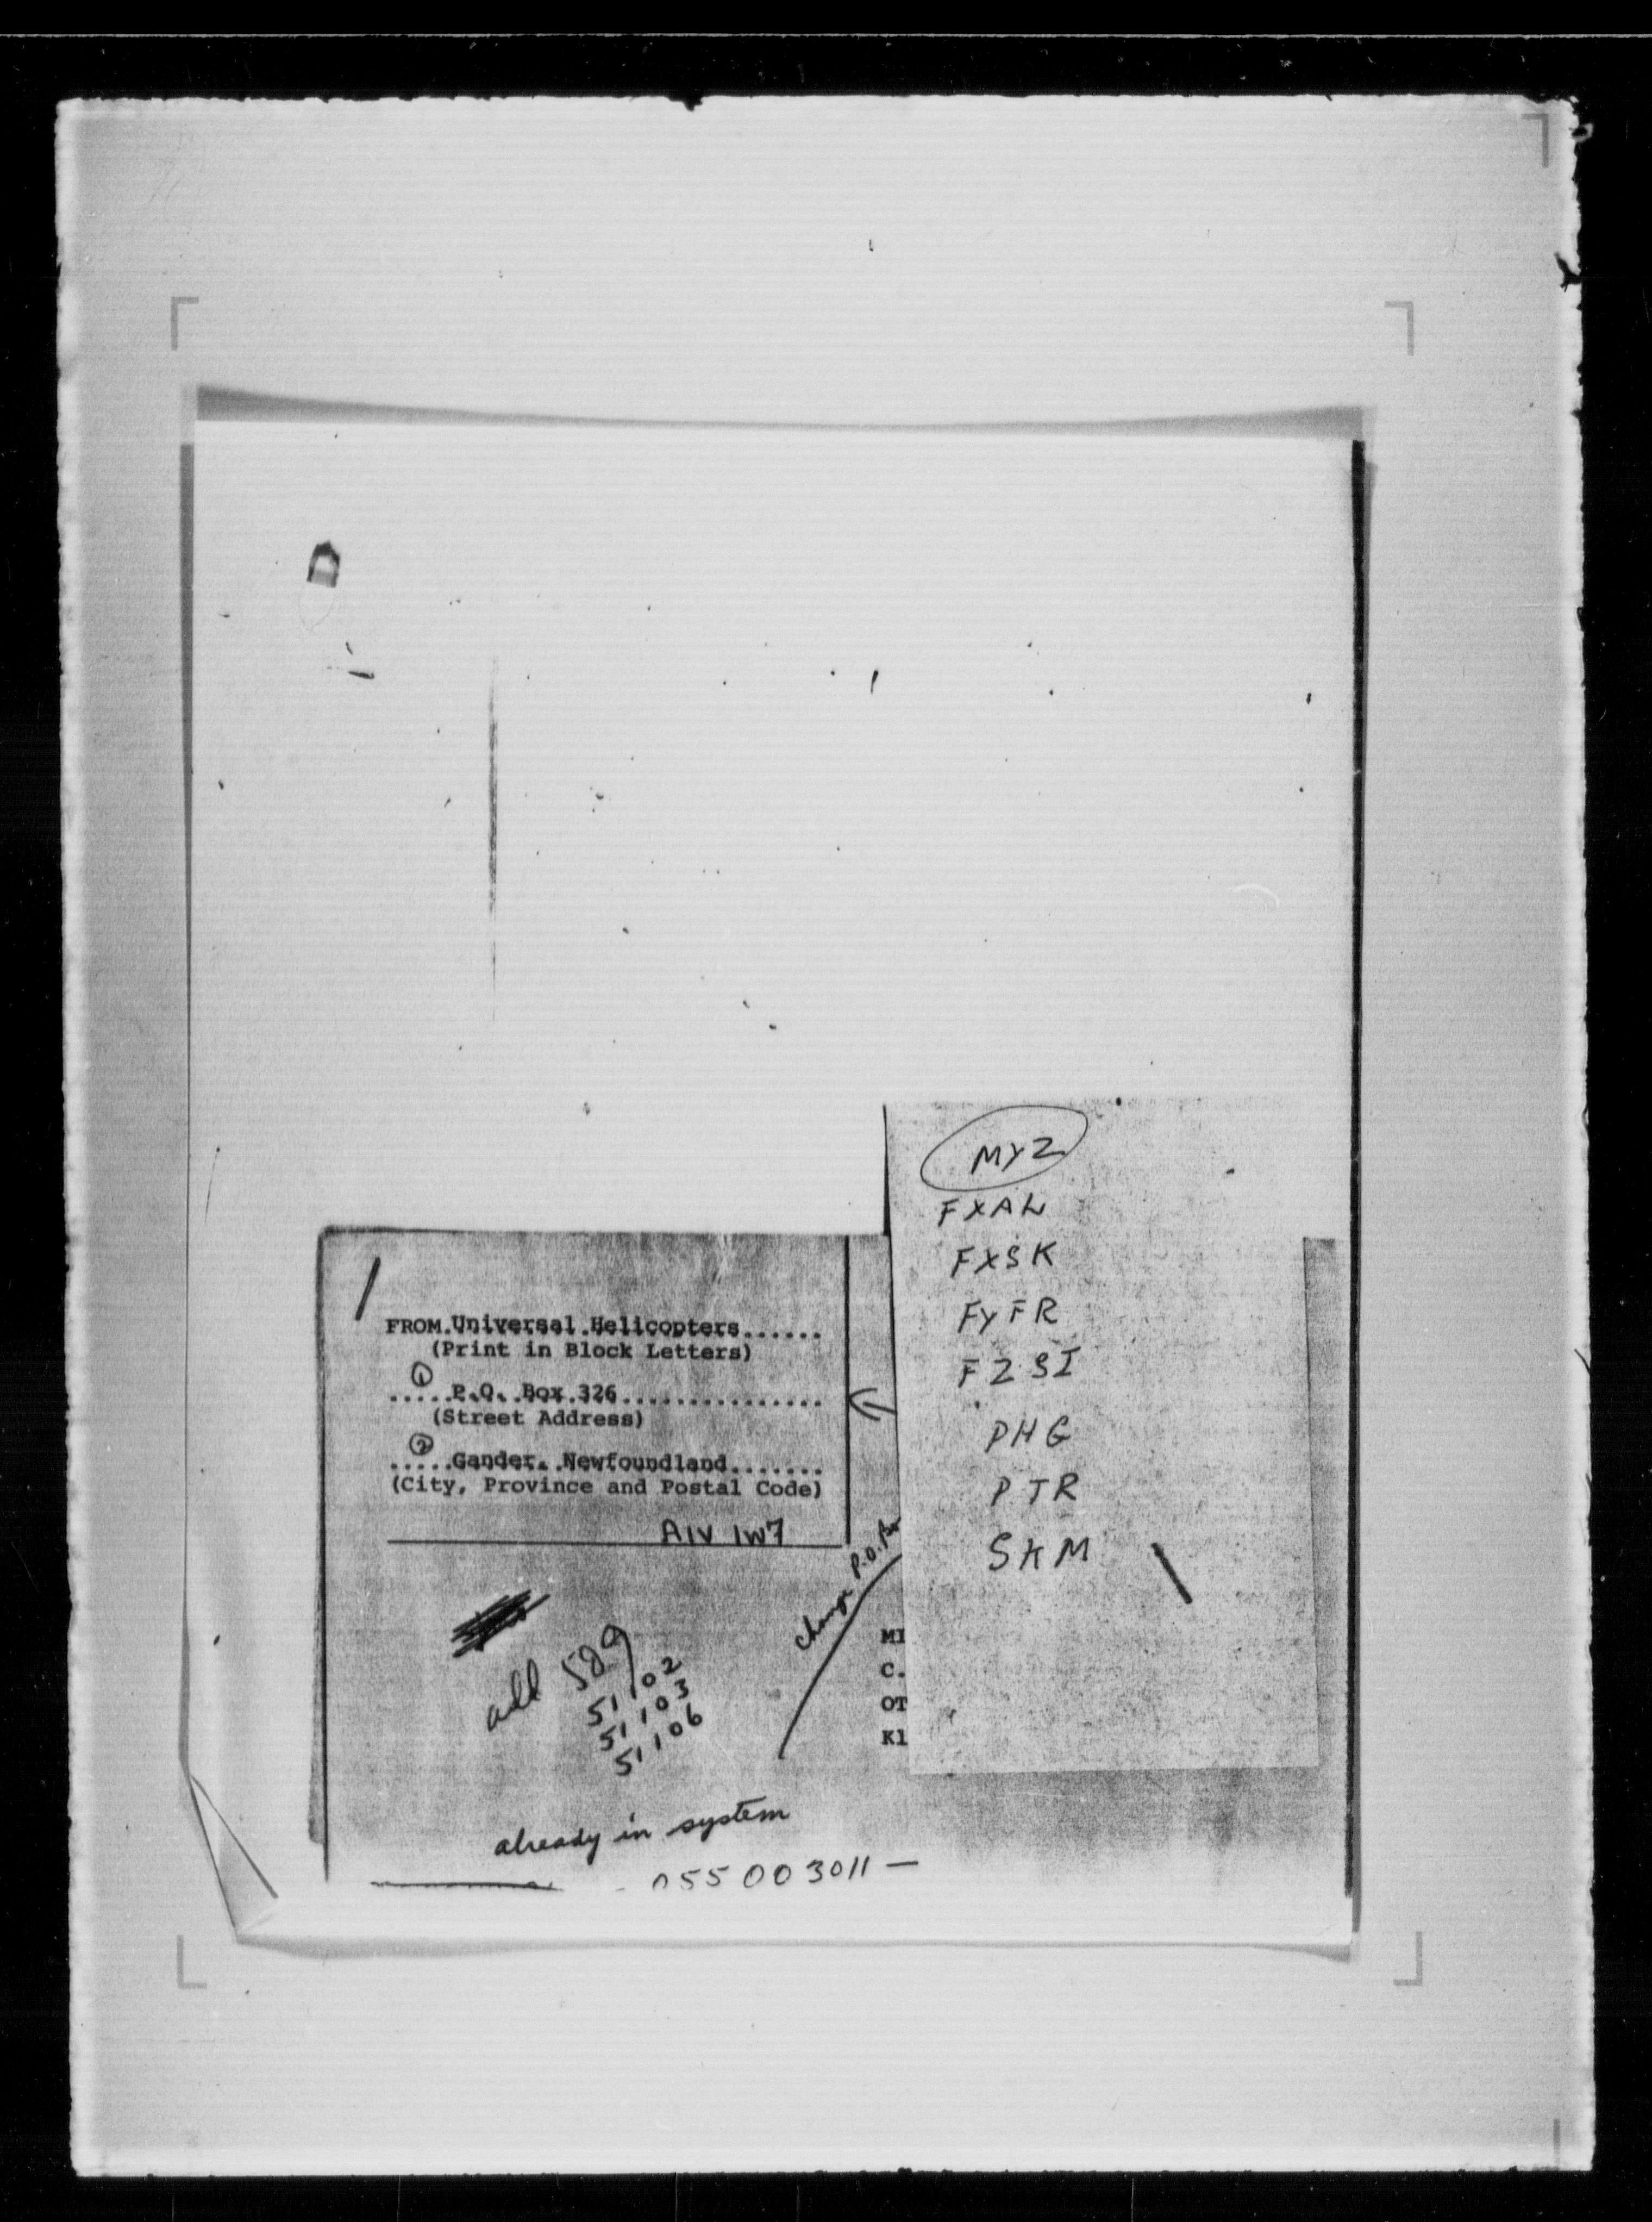 MYZ
FXAL
FXSK
FYFR
FZSI
PHG
PTR
SKM
FROM.Universal.Helicopters......
(Print in Block Letters)
①
.....P.O. Box 326................
(Street Address)
②
.....Gander, Newfoundland.......
(City, Province and Postal Code)
A1V 1W7
change P.O. Box
add 589
51102
51103
51106
MI
C.
OT
K1
already in system
055 003011 —